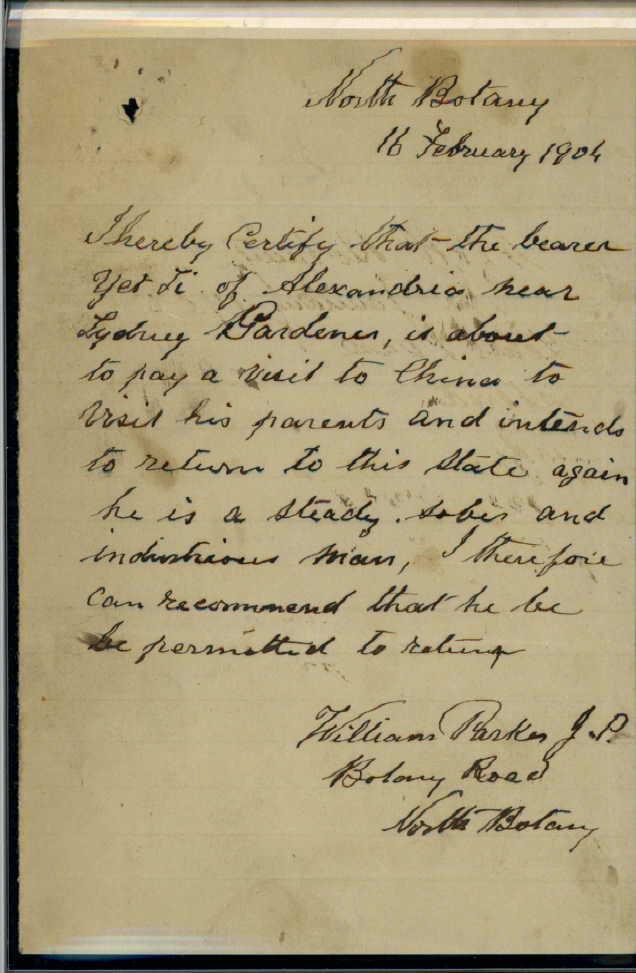 North Botany
16 February 1904
I hereby Certify that the bearer
Yet Ti of Alexandria near
Sydney Gardener, is about
to pay a visit to China to
Visit his parents and intends
to return to this State again
he is a steady. sober and
industrious man, I therefore
can recommend that he be
be permitted to return
William Parker J.P.
Botany Road
North Botany